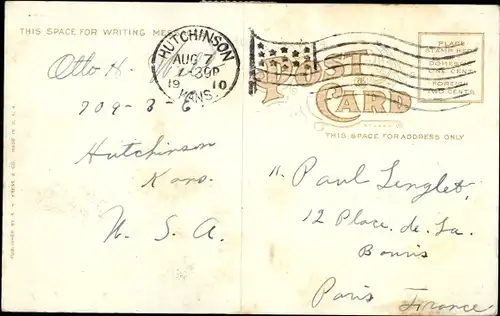 THIS SPACE FOR WRITING
HUTCHINSON
AUG 7
-30P
1910
KANS.
POST CARD
PLACE
STAMP HERE
DOMESTIC
ONE CENT
FOREIGN
TWO CENTS
THIS SPACE FOR ADDRESS ONLY
Otto H.
709-3-E
Hutchinson
Kans.
U. S. A.
Paul Lenglet,
12 Place. de. La.
Paris France